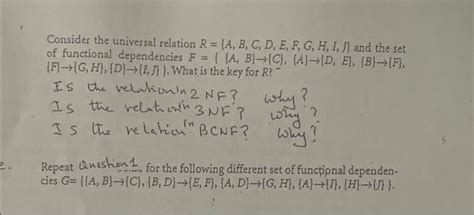 Consider the universal relation R = {A, B, C, D, E, F, G, H, I, J} and the set
of functional dependencies F = { {A, B}→{C}, {A}→{D, E}, {B}→{F},
{F}→{G, H}, {D}→{I, J} }. What is the key for R?
Is the relation in 2 NF? why?
Is the relation in 3NF? why?
Is the relation in BCNF? why?
2. Repeat Question 1 for the following different set of functional dependen-
cies G= {{A, B}→{C}, {B, D}→{E, F}, {A, D}→{G, H}, {A}→{I}, {H}→{J} }.